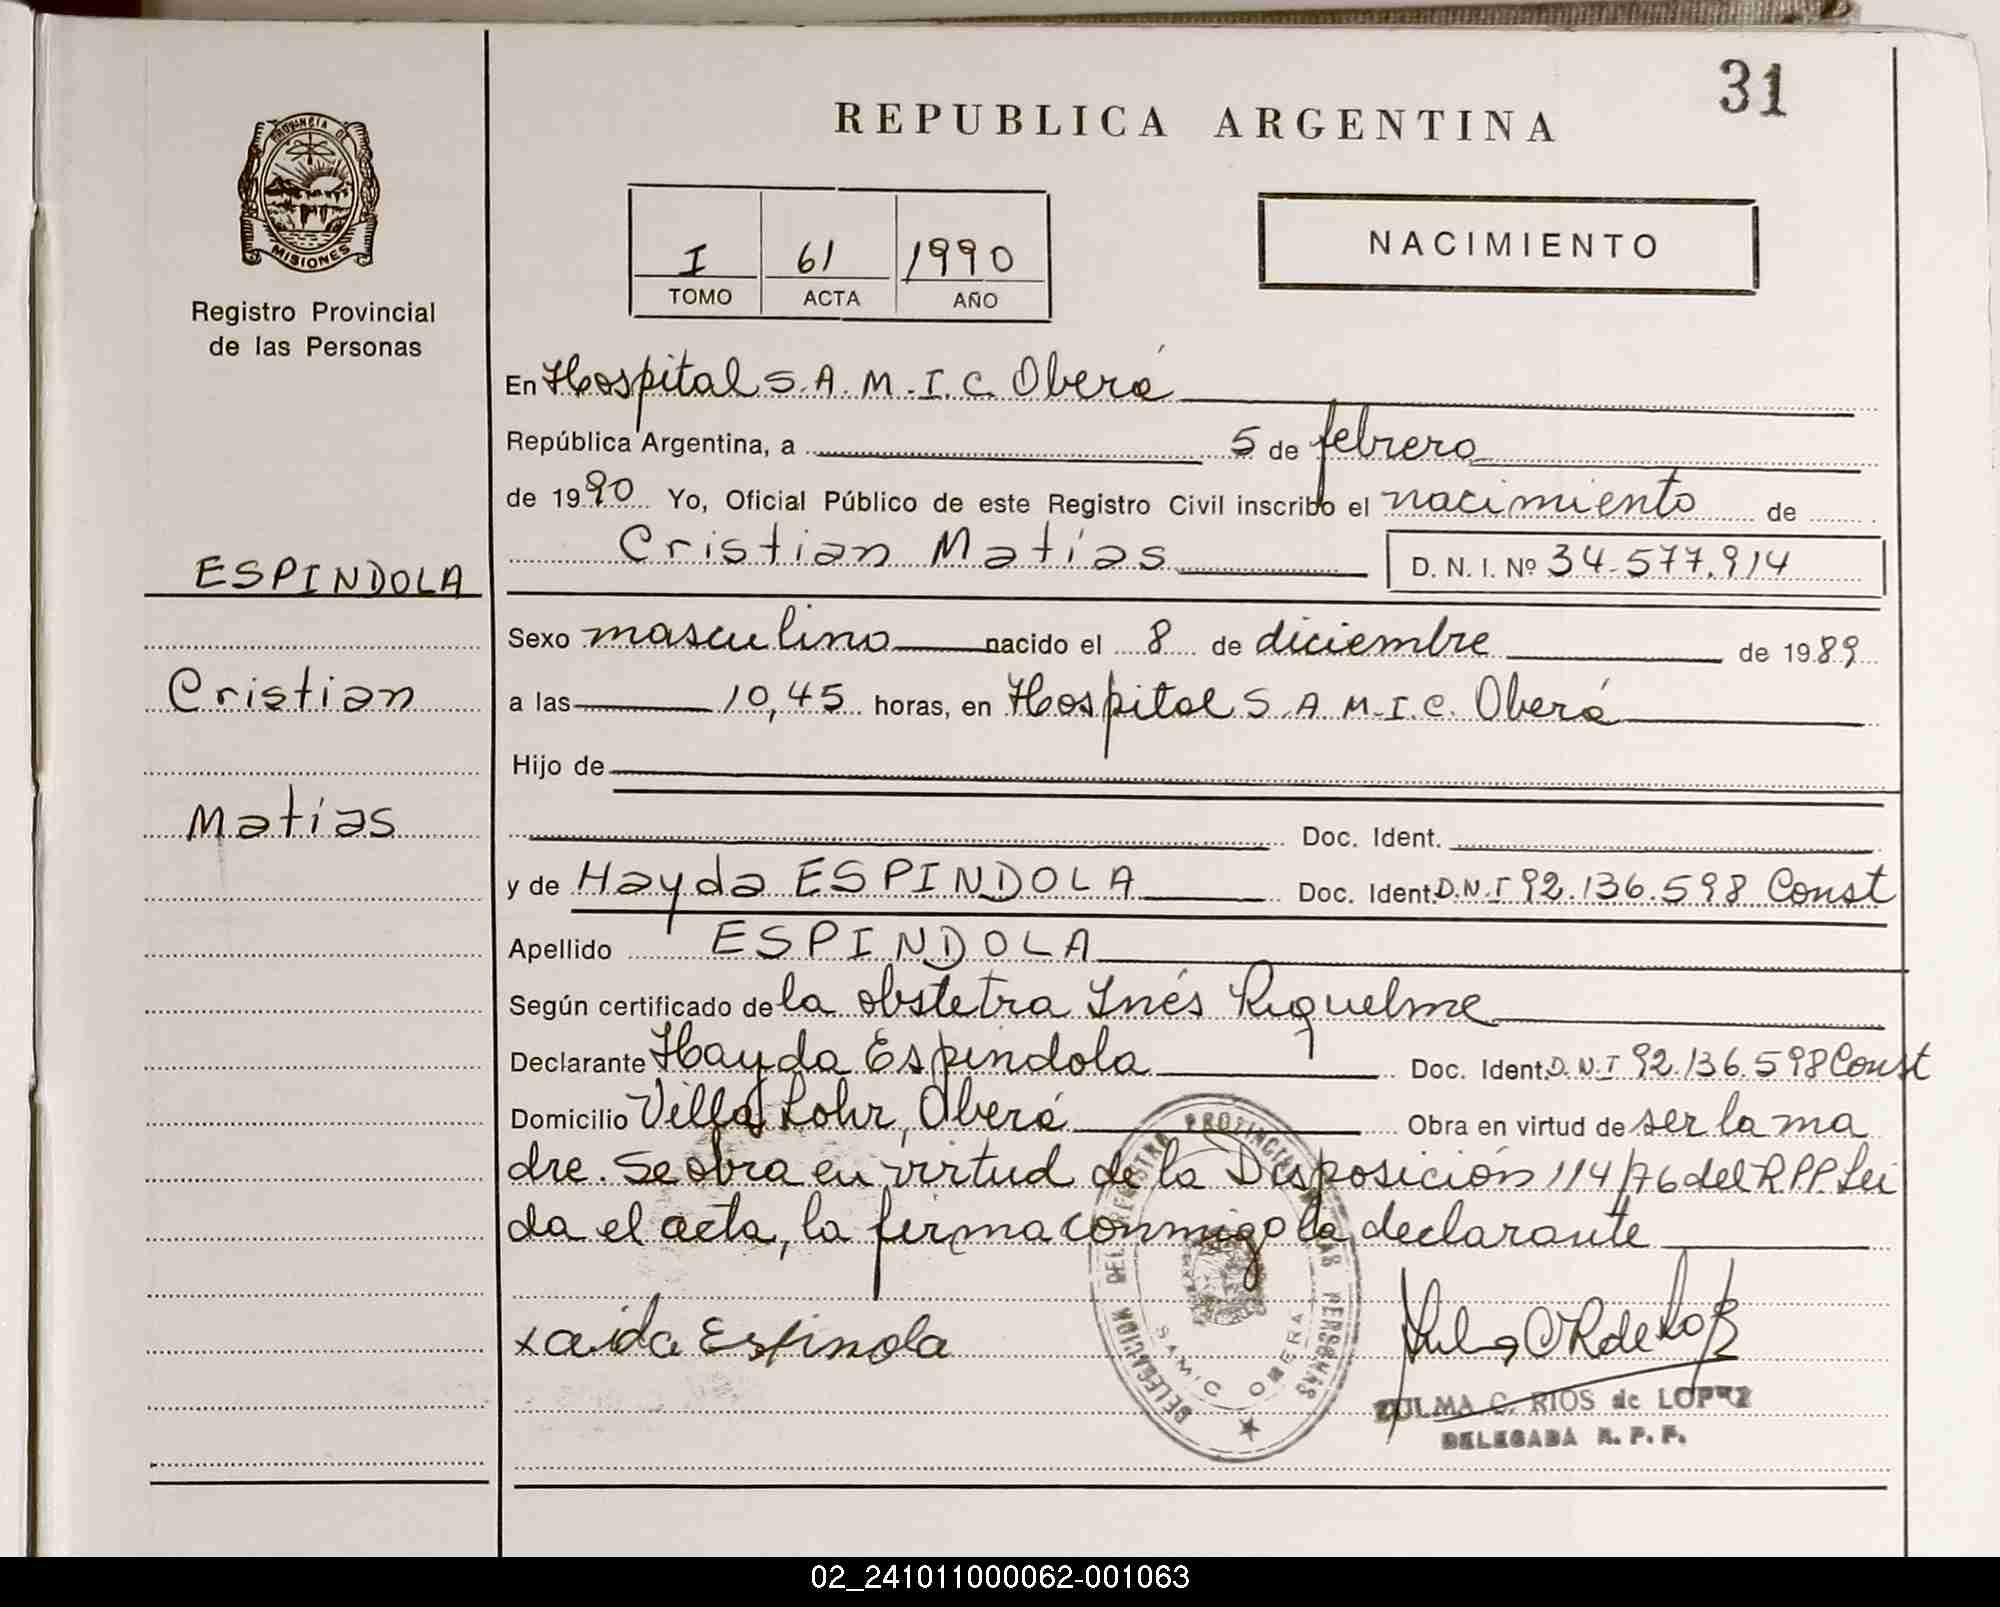 31
REPUBLICA ARGENTINA
PROVINCIA DE
MISIONES
Registro Provincial
de las Personas
I 61 1990
TOMO ACTA AÑO
NACIMIENTO
En Hospital S.A.M.I.C. Oberá
República Argentina, a 5 de febrero
de 1990 Yo, Oficial Público de este Registro Civil inscribo el nacimiento de
Cristian Matías D. N. I. Nº 34.577.914
ESPINDOLA
Cristian
Matías
Sexo masculino nacido el 8 de diciembre de 1989
a las 10,45 horas, en Hospital S.A.M.I.C. Oberá
Hijo de
Doc. Ident.
y de Hayda ESPINDOLA Doc. Ident. D.N.I 92.136.598 Const
Apellido ESPINDOLA
Según certificado de la obstetra Inés Riquelme
Declarante Hayda Espindola Doc. Ident. D.N.I 92.136.598 Const
Domicilio Villa Lohr, Oberá Obra en virtud de ser la ma
dre. Se obra en virtud de la Disposición 114/76 del R.P.P. Lei
da el acta, la firma conmigo la declarante
xaida Espinola
DELEGACION DEL REGISTRO PROVINCIAL DE LAS PERSONAS
SAMIC OBERA
ZULMA C. RIOS de LOPEZ
DELEGADA R. P. P.
02_241011000062-001063